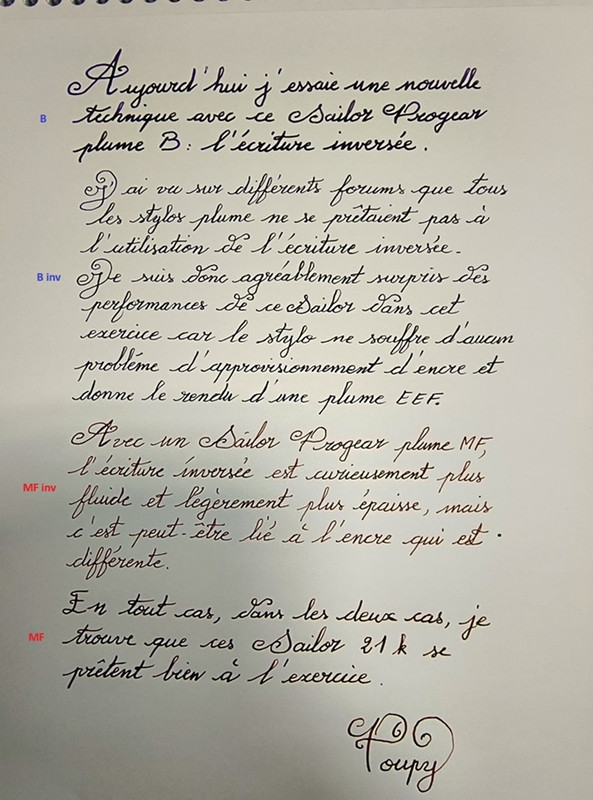 Aujourd'hui j'essaie une nouvelle
B technique avec ce Sailor Progear
plume B : l'écriture inversée.
J'ai vu sur différents forums que tous
les stylos plume ne se prêtaient pas à
l'utilisation de l'écriture inversée.
B inv Je suis donc agréablement surpris des
performances de ce Sailor dans cet
exercice car le stylo ne souffre d'aucun
problème d'approvisionnement d'encre et
donne le rendu d'une plume EEF.
Avec un Sailor Progear plume MF,
l'écriture inversée est curieusement plus
MF inv fluide et légèrement plus épaisse, mais
c'est peut-être lié à l'encre qui est
différente.
En tout cas, dans les deux cas, je
MF trouve que ces Sailor 21 k se
prêtent bien à l'exercice.
Poupy